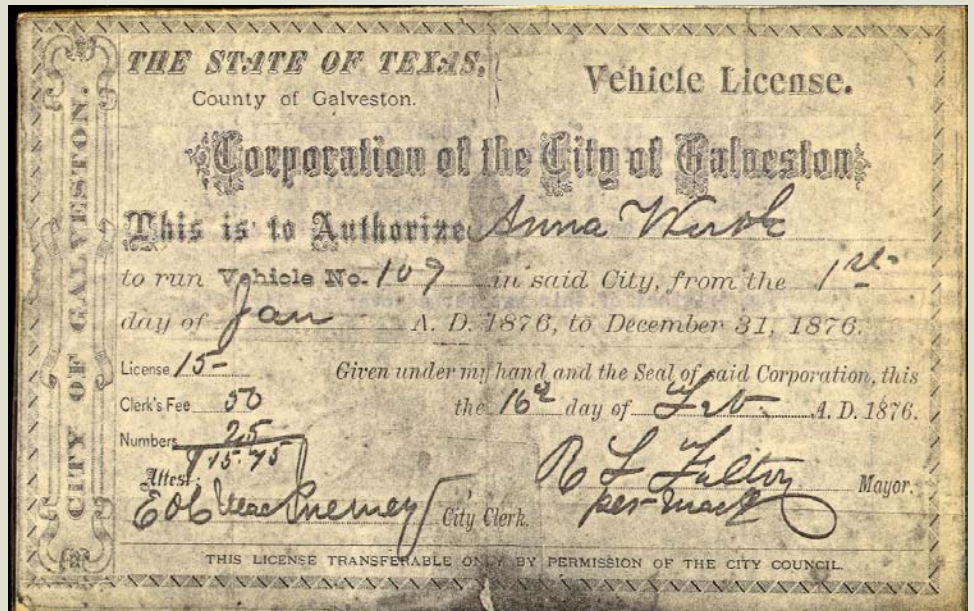 CITY OF GALVESTON.
THE STATE OF TEXAS,
County of Galveston.
Vehicle License.
Corporation of the City of Galveston
This is to Authorize Anna
to run Vehicle No. 109 in said City, from the 1st
day of Jan A. D. 1876, to December 31, 1876.
License 15-
Given under my hand and the Seal of said Corporation, this
Clerk's Fee 50
the 16th day of Feb. A. D. 1876.
Numbers 25
$15.75
Attest:
City Clerk.
R L Fulton Mayor.
per
THIS LICENSE TRANSFERABLE ONLY BY PERMISSION OF THE CITY COUNCIL.